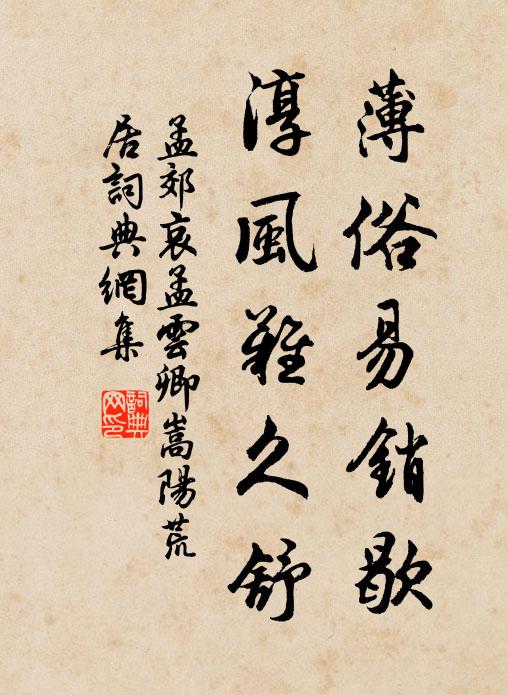 薄俗易銷歇
淳風難久舒
孟郊哀孟雲卿嵩陽荒
居詞典網集
詞典
网印